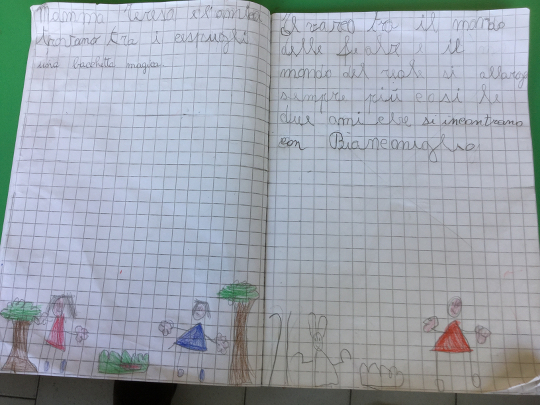 Mamma Orso e l'amica
trovano tra i cespugli
una bacchetta magica
Il varco tra il mondo
delle fiabe e il
mondo del reale si allarga
sempre più e così le
due amiche si incontrano
con Bianconiglio